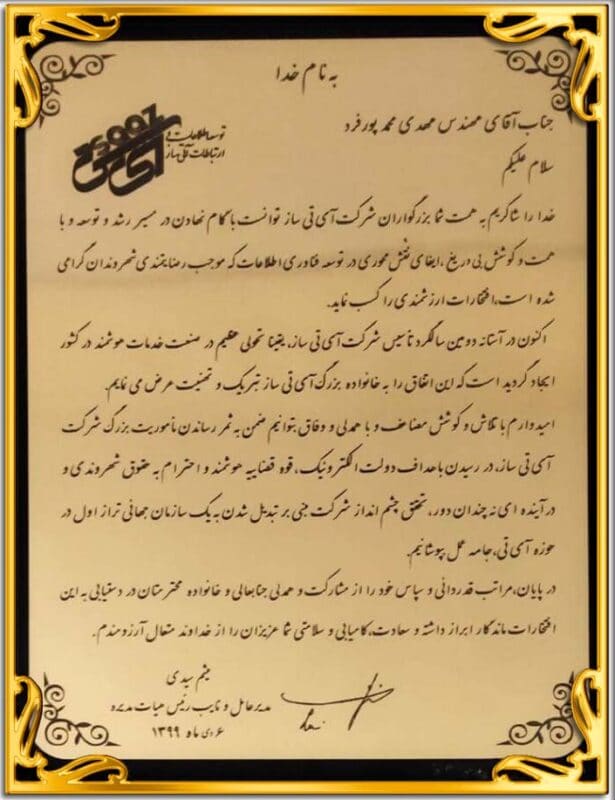 به نام خدا
توسعه اطلاعات و
ارتباطات آتی ساز
جناب آقای مهندس مهدی محمد پور فرد
سلام علیکم
خدا را شاکریم به همت شما بزرگواران شرکت آی تی ساز توانست با گام نهادن در مسیر رشد و توسعه و با
همت و کوشش بی دریغ، ایفای نقش محوری در توسعه فناوری اطلاعات که موجب رضایتمندی شهروندان گرامی
شده است، افتخارات ارزشمندی را کسب نماید.
اکنون در آستانه دومین سالگرد تأسیس شرکت آی تی ساز، یقینا تحولی عظیم در صنعت خدمات هوشمند در کشور
ایجاد گردید است که این اتفاق را به خانواده بزرگ آی تی ساز تبریک و تهنیت عرض می نمایم.
امیدوارم با تلاش و کوشش مضاعف و با همدلی و وفاق بتوانیم ضمن به ثمر رساندن مأموریت بزرگ شرکت
آی تی ساز، در رسیدن با هداف دولت الکترونیک، قوه قضاییه هوشمند و احترام به حقوق شهروندی و
در آینده ای نه چندان دور، تحقق چشم انداز شرکت مبنی بر تبدیل شدن به یک سازمان جهانی تراز اول در
حوزه آی تی، جامه عمل بپوشانیم.
در پایان، مراتب قدردانی و سپاس خود را از مشارکت و همدلی جنابعالی و خانواده محترمتان در دستیابی به این
افتخارات ماندگار ابراز داشته و سعادت، کامیابی و سلامتی شما عزیزان را از خداوند متعال آرزومندم.
میثم سیدی
مدیرعامل و نایب رئیس هیات مدیره
۶ دی ماه ۱۳۹۹